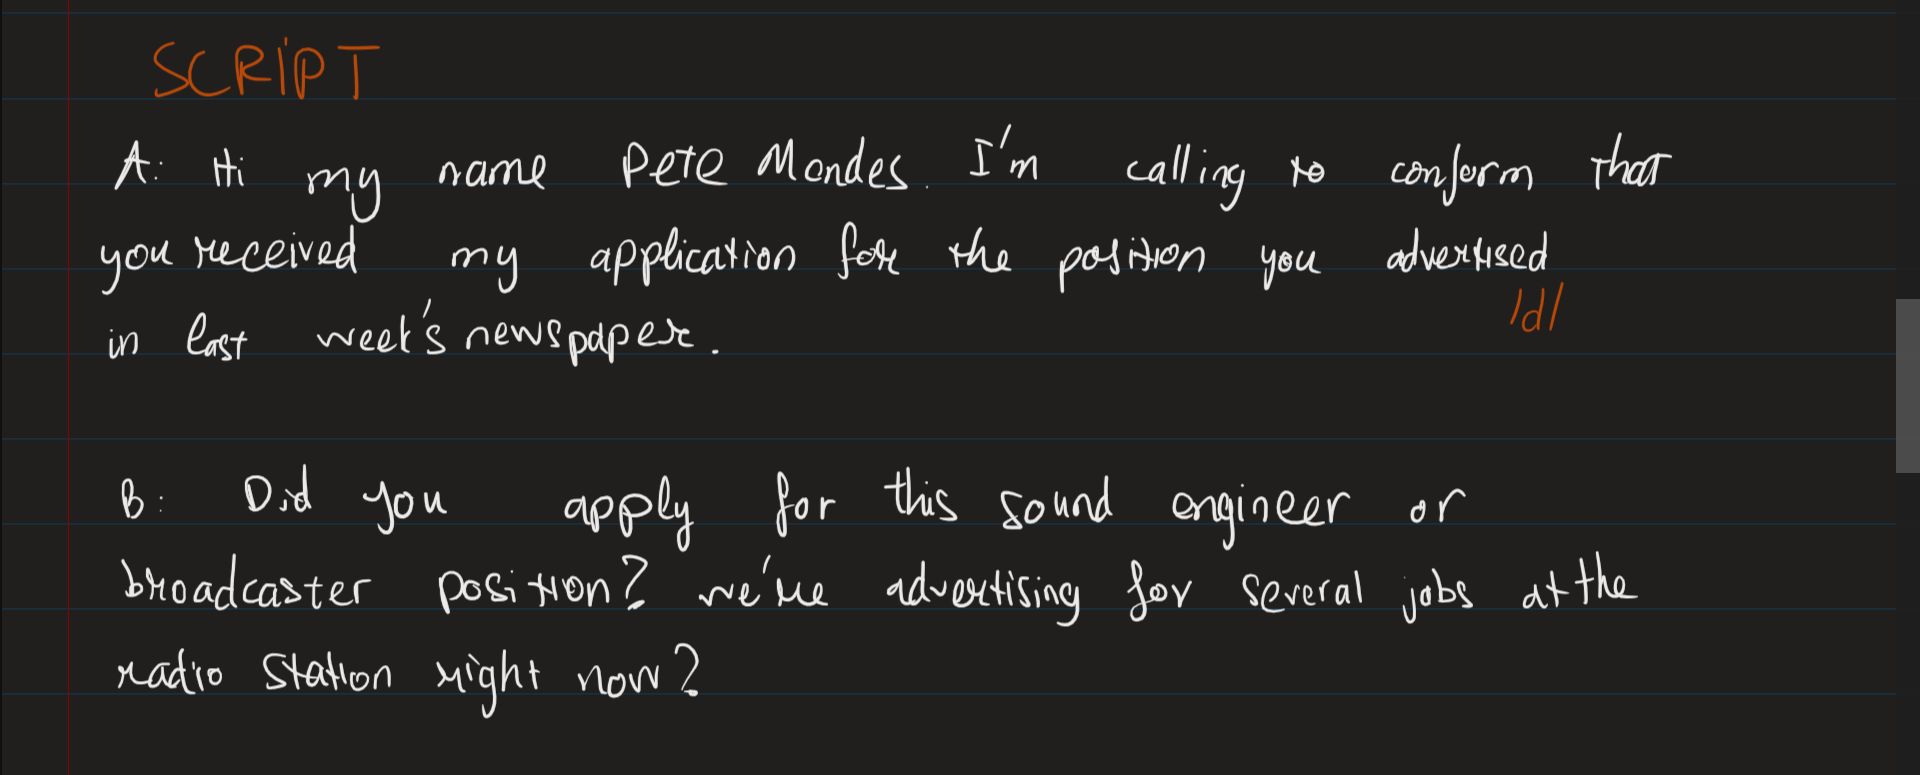 SCRIPT
A: Hi my name Pete Mondes. I'm calling to conform that
you received my application for the position you advertised
/d/
in last week's newspaper.
B: Did you apply for this sound engineer or
broadcaster position? we're advertising for several jobs at the
radio station right now?